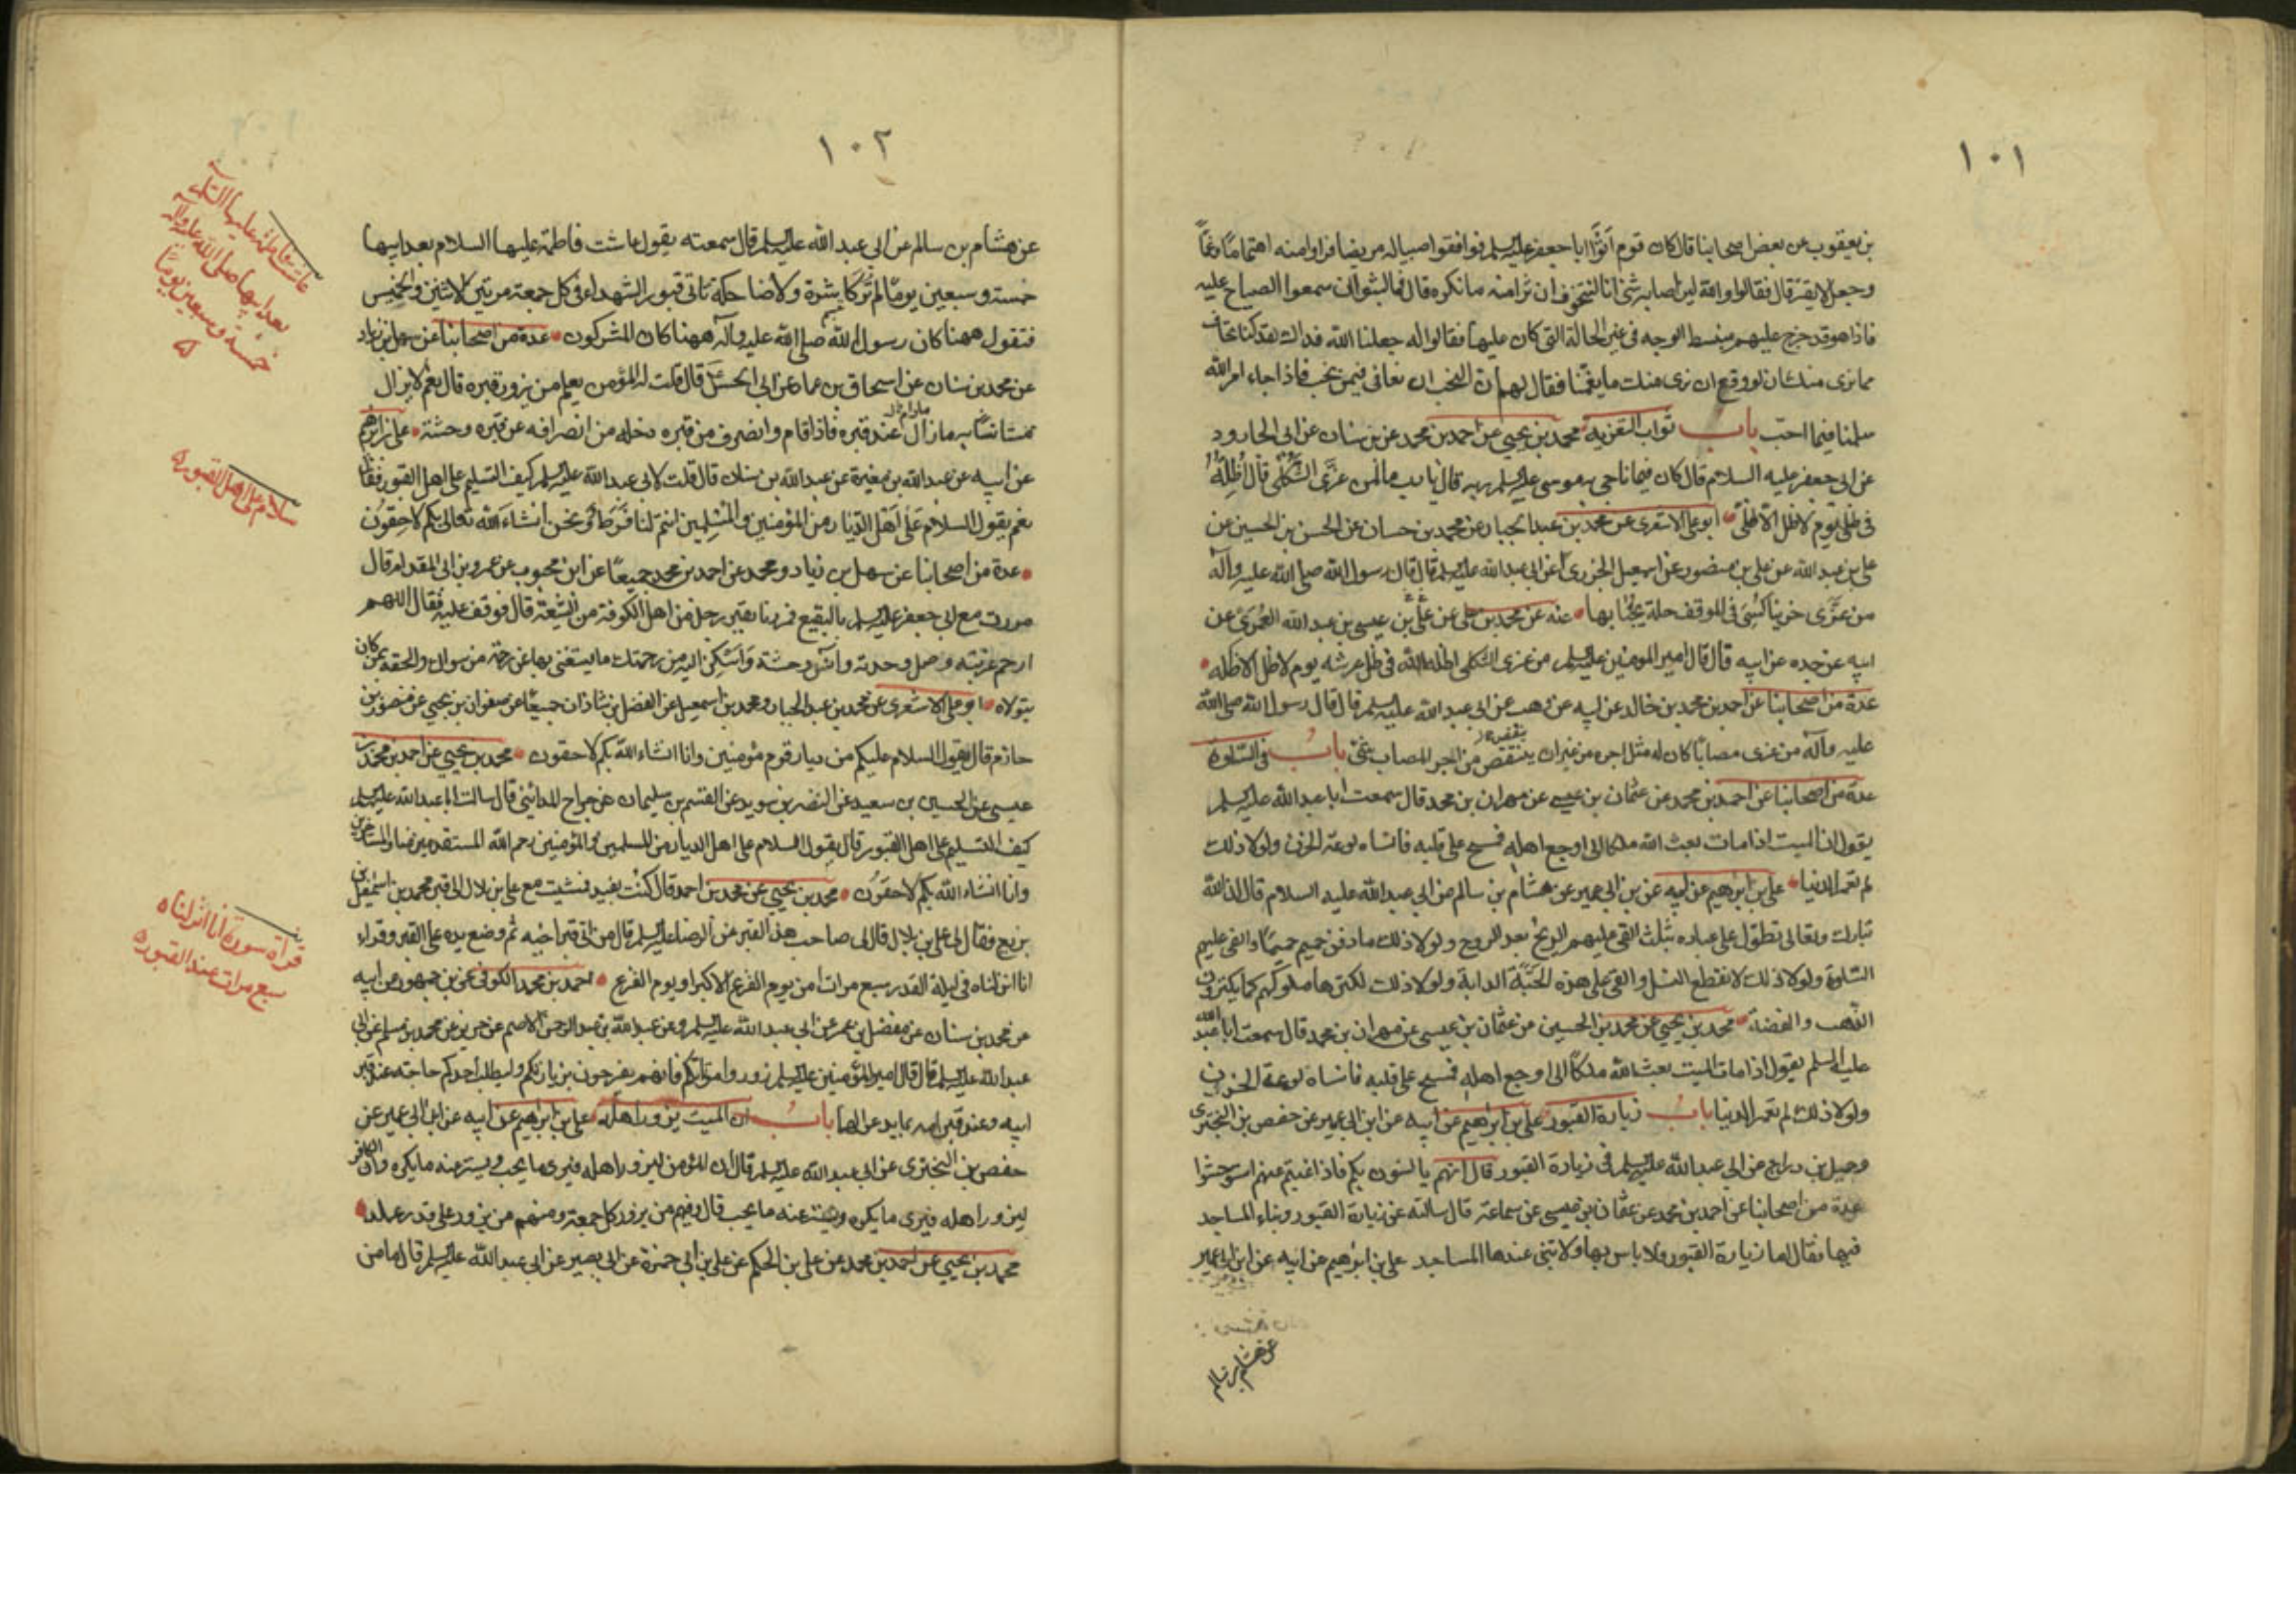 ١٠١
بن يعقوب عن بعض اصحابنا قال كان قوم اتوا ابا جعفر عليه السلم فوافقوا صبيا له مريضا فراوا منه اهتماما وغما
وجعل لا يقر قال فقالوا والله لئن اصابه شئ انا لنتخوف ان نرا منه ما نكره قال فما لبثوا ان سمعوا الصياح عليه
فاذا هو قد خرج عليهم منبسط الوجه فى غير الحالة التى كان عليها فقالوا له جعلنا الله فداك لقد كنا نخاف
مما نرى منك ان لو وقع ان نرى منك ما يغمنا فقال لهم ان النحب ان نعافى فيمن نحب فاذا جاء امر الله
سلمنا فيما احب باب ثواب التعزيه محمد بن يحيى عن احمد بن محمد عن بن سنان عن ابى الجارود
عن ابى جعفر عليه السلام قال كان فيما ناجى به موسى عليه السلم ربه قال يا رب ما لمن عزى الثكلى قال اظله
فى ظلى يوم لا ظل الا ظلى ابو على الاشعرى عن محمد بن عبد الجبار عن محمد بن حسان عن الحسن بن الحسين عن
على بن عبد الله عن على بن منصور عن اسمعيل الجزرى عن ابى عبد الله عليه السلم قال قال رسول الله صلى الله عليه وآله
من عزى حزينا كسى فى الموقف حلة يحبا بها عنه عن محمد بن على عن على بن عيسى بن عبد الله العمرى عن
ابيه عن جده عن ابيه قال قال امير المومنين عليه السلم من عزى الثكلى اظله الله فى ظل عرشه يوم لا ظل الا ظله
عدة من اصحابنا عن احمد بن محمد بن خالد عن ابيه عن وهب عن ابى عبد الله عليه السلم قال قال رسول الله صلى الله
عليه وآله من عزى مصابا كان له مثل اجره من غير ان ينتقص من اجر المصاب شئ باب فى السلوة
عدة من اصحابنا عن احمد بن محمد عن عثمان بن عيسى عن مهران بن محمد قال سمعت ابا عبد الله عليه السلم
يقول ان الميت اذا مات بعث الله ملكا الى اوجع اهله فمسح على قلبه فانساه لوعة الحزن ولولا ذلك
لم تعمر الدنيا على بن ابرهيم عن ابيه عن بن ابى عمير عن هشام بن سالم عن ابى عبد الله عليه السلام قال ان الله
تبارك وتعالى تطول على عباده بثلث القى عليهم الريح بعد الروح ولولا ذلك ما دفن حميم حميما والقى عليهم
السلوة ولولا ذلك لانقطع النسل والقى على هذه الحبة الدابة ولولا ذلك لكنزها ملوكهم كما يكنزون
الذهب والفضة محمد بن يحيى عن محمد بن الحسين عن عثمان بن عيسى عن مهران بن محمد قال سمعت ابا عبد الله
عليه السلم يقول اذا مات الميت بعث الله ملكا الى اوجع اهله فمسح على قلبه فانساه لوعة الحزن
ولولا ذلك لم تعمر الدنيا باب زيارة القبور على بن ابرهيم عن ابيه عن ابن ابى عمير عن حفص بن البخترى
وجميل بن دراج عن ابى عبد الله عليه السلم فى زيارة القبور قال انهم يانسون بكم فاذا غبتم عنهم استوحشوا
عدة من اصحابنا عن احمد بن محمد عن عثمان بن عيسى عن سماعة قال سالته عن زيارة القبور وبناء المساجد
فيها فقال اما زيارة القبور فلا باس بها ولا تبنى عندها المساجد على بن ابرهيم عن ابيه عن ابن ابى عمير
عن هشام بن سالم
١٠٢
عن هشام بن سالم عن ابى عبد الله عليه السلم قال سمعته يقول عاشت فاطمة عليها السلام بعد ابيها
خمسة وسبعين يوما لم تر كاشرة ولا ضاحكة تاتى قبور الشهداء فى كل جمعة مرتين الاثنين والخميس
فتقول ههنا كان رسول الله صلى الله عليه وآله ههنا كان المشركون عدة من اصحابنا عن سهل بن زياد
عن محمد بن سنان عن اسحاق بن عمار عن ابى الحسن قال قلت له المؤمن يعلم من يزور قبره قال نعم لا يزال
مستانسا به ما زال عند قبره فاذا قام وانصرف من قبره دخله من انصرافه عن قبره وحشة على بن ابرهيم
عن ابيه عن عبد الله بن مغيرة عن عبد الله بن سنان قال قلت لابى عبد الله عليه السلم كيف التسليم على اهل القبور فقال
نعم يقول السلام على اهل الديار من المؤمنين والمسلمين انتم لنا فرط ونحن انشاء الله تعالى بكم لاحقون
عدة من اصحابنا عن سهل بن زياد ومحمد عن احمد بن محمد جميعا عن ابن محبوب عن عمرو بن ابى المقدام قال
مررت مع ابى جعفر عليه السلم بالبقيع فمررنا بقبر رجل من اهل الكوفة من الشيعة قال فوقف عليه فقال اللهم
ارحم غربته وصل وحدته وانس وحشته واسكن اليه من رحمتك ما يستغنى بها عن رحمة من سواك والحقه بمن كان
يتولاه ابو على الاشعرى عن محمد بن عبد الجبار ومحمد بن اسمعيل عن الفضل بن شاذان جميعا عن صفوان بن يحيى عن منصور بن
حازم قال يقول السلام عليكم من ديار قوم مؤمنين وانا انشاء الله بكم لاحقون محمد بن يحيى عن احمد بن محمد بن
عيسى عن الحسين بن سعيد عن النضر بن سويد عن القسم بن سليمان عن جراح المدائنى قال سالت ابا عبد الله عليه السلم
كيف التسليم على اهل القبور قال يقول السلام على اهل الديار من المسلمين والمؤمنين رحم الله المستقدمين منا والمستاخرين
وانا انشاء الله بكم لاحقون محمد بن يحيى عن محمد بن احمد قال كنت بفيد فمشيت مع على بن بلال الى قبر محمد بن اسمعيل بن
بزيع فقال لى على بن بلال قال لى صاحب هذا القبر عن الرضا عليه السلم قال من اتى قبر اخيه ثم وضع يده على القبر وقراء
انا انزلناه فى ليلة القدر سبع مرات امن يوم الفزع الاكبر او يوم الفزع احمد بن محمد الكوفى عن بن جمهور عن ابيه
عن محمد بن سنان عن مفضل بن عمر عن ابى عبد الله عليه السلم وعن عبد الله بن عبد الرحمن الاصم عن حريز عن محمد بن مسلم عن ابى
عبد الله عليه السلم قال قال امير المؤمنين عليه السلم زوروا موتاكم فانهم يفرحون بزيارتكم وليطلب احدكم حاجته عند قبر
ابيه وعند قبر امه بما يدعو لهما باب ان الميت يزور اهله على بن ابرهيم عن ابيه عن ابن ابى عمير عن
حفص بن البخترى عن ابى عبد الله عليه السلم قال ان المؤمن ليزور اهله فيرى ما يحب ويستر عنه ما يكره وان الكافر
ليزور اهله فيرى ما يكره ويستر عنه ما يحب قال ومنهم من يزور كل جمعة ومنهم من يزور على قدر عمله
محمد بن يحيى عن احمد بن محمد عن على بن الحكم عن على بن ابى حمزة عن ابى بصير عن ابى عبد الله عليه السلم قال ما من
عاشت فاطمة عليها السلم
بعد ابيها صلى الله عليه وآله
خمسة وسبعين يوما
سلام على اهل القبور
قراة سورة انا انزلناه
سبع مرات عند القبور